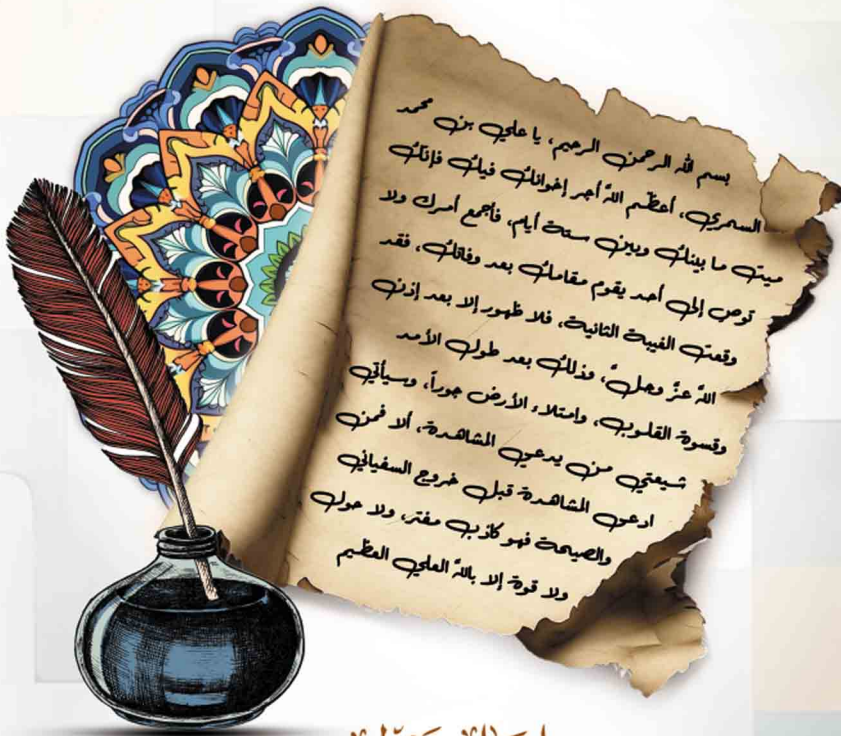 بسم الله الرحمن الرحيم، يا علي بن محمد
السمري، أعظم اللّه أجر إخوانك فيك فإنك
ميت ما بينك وبين ستة أيام، فأجمع أمرك ولا
توص إلى أحد يقوم مقامك بعد وفاتك، فقد
وقعت الغيبة الثانية، فلا ظهور إلا بعد إذن
اللّه عزّ وجلّ، وذلك بعد طول الأمد
وقسوة القلوب، وامتلاء الأرض جوراً، وسيأتي
شيعتي من يدعي المشاهدة، ألا فمن
ادعى المشاهدة قبل خروج السفياني
والصيحة فهو كاذب مفتر، ولا حول
ولا قوة إلا باللّه العلي العظيم